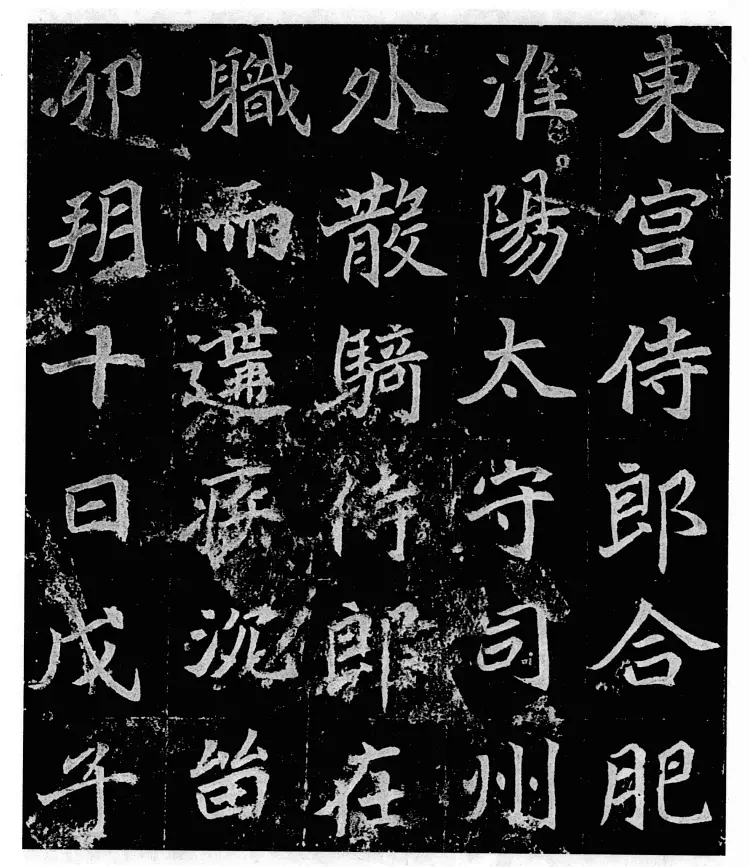 東宫侍郎合肥
淮陽太守司州
外散騎侍郎在
職而遘疾沉留
卯朔十日戊子